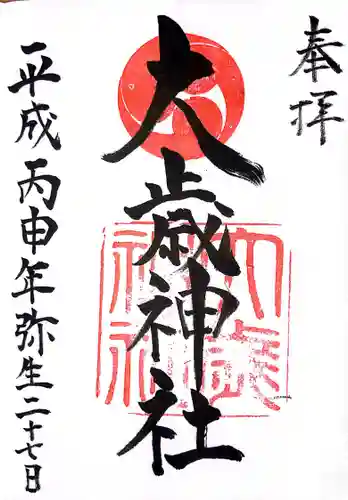 奉拝
大歳神社
大歳
神社
平成丙申年弥生二十七日